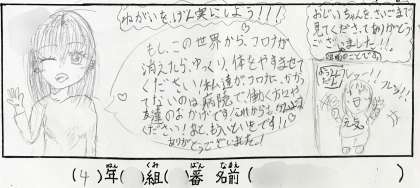 ねがいをげん実にしよう!!!
もし、この世界から、コロナが
消えたら、ゆっくり、体をやすませて
ください!私達が、コロナに、かかっ
てないのは病院で、働く方々や
友達のおかげです!これからも、がんばって
ください!
ありがとうございました!
おじいちゃんを、さいごまで
見てくださってありがとう
ございました!!
元気
(4)年( )組( )番 名前( )